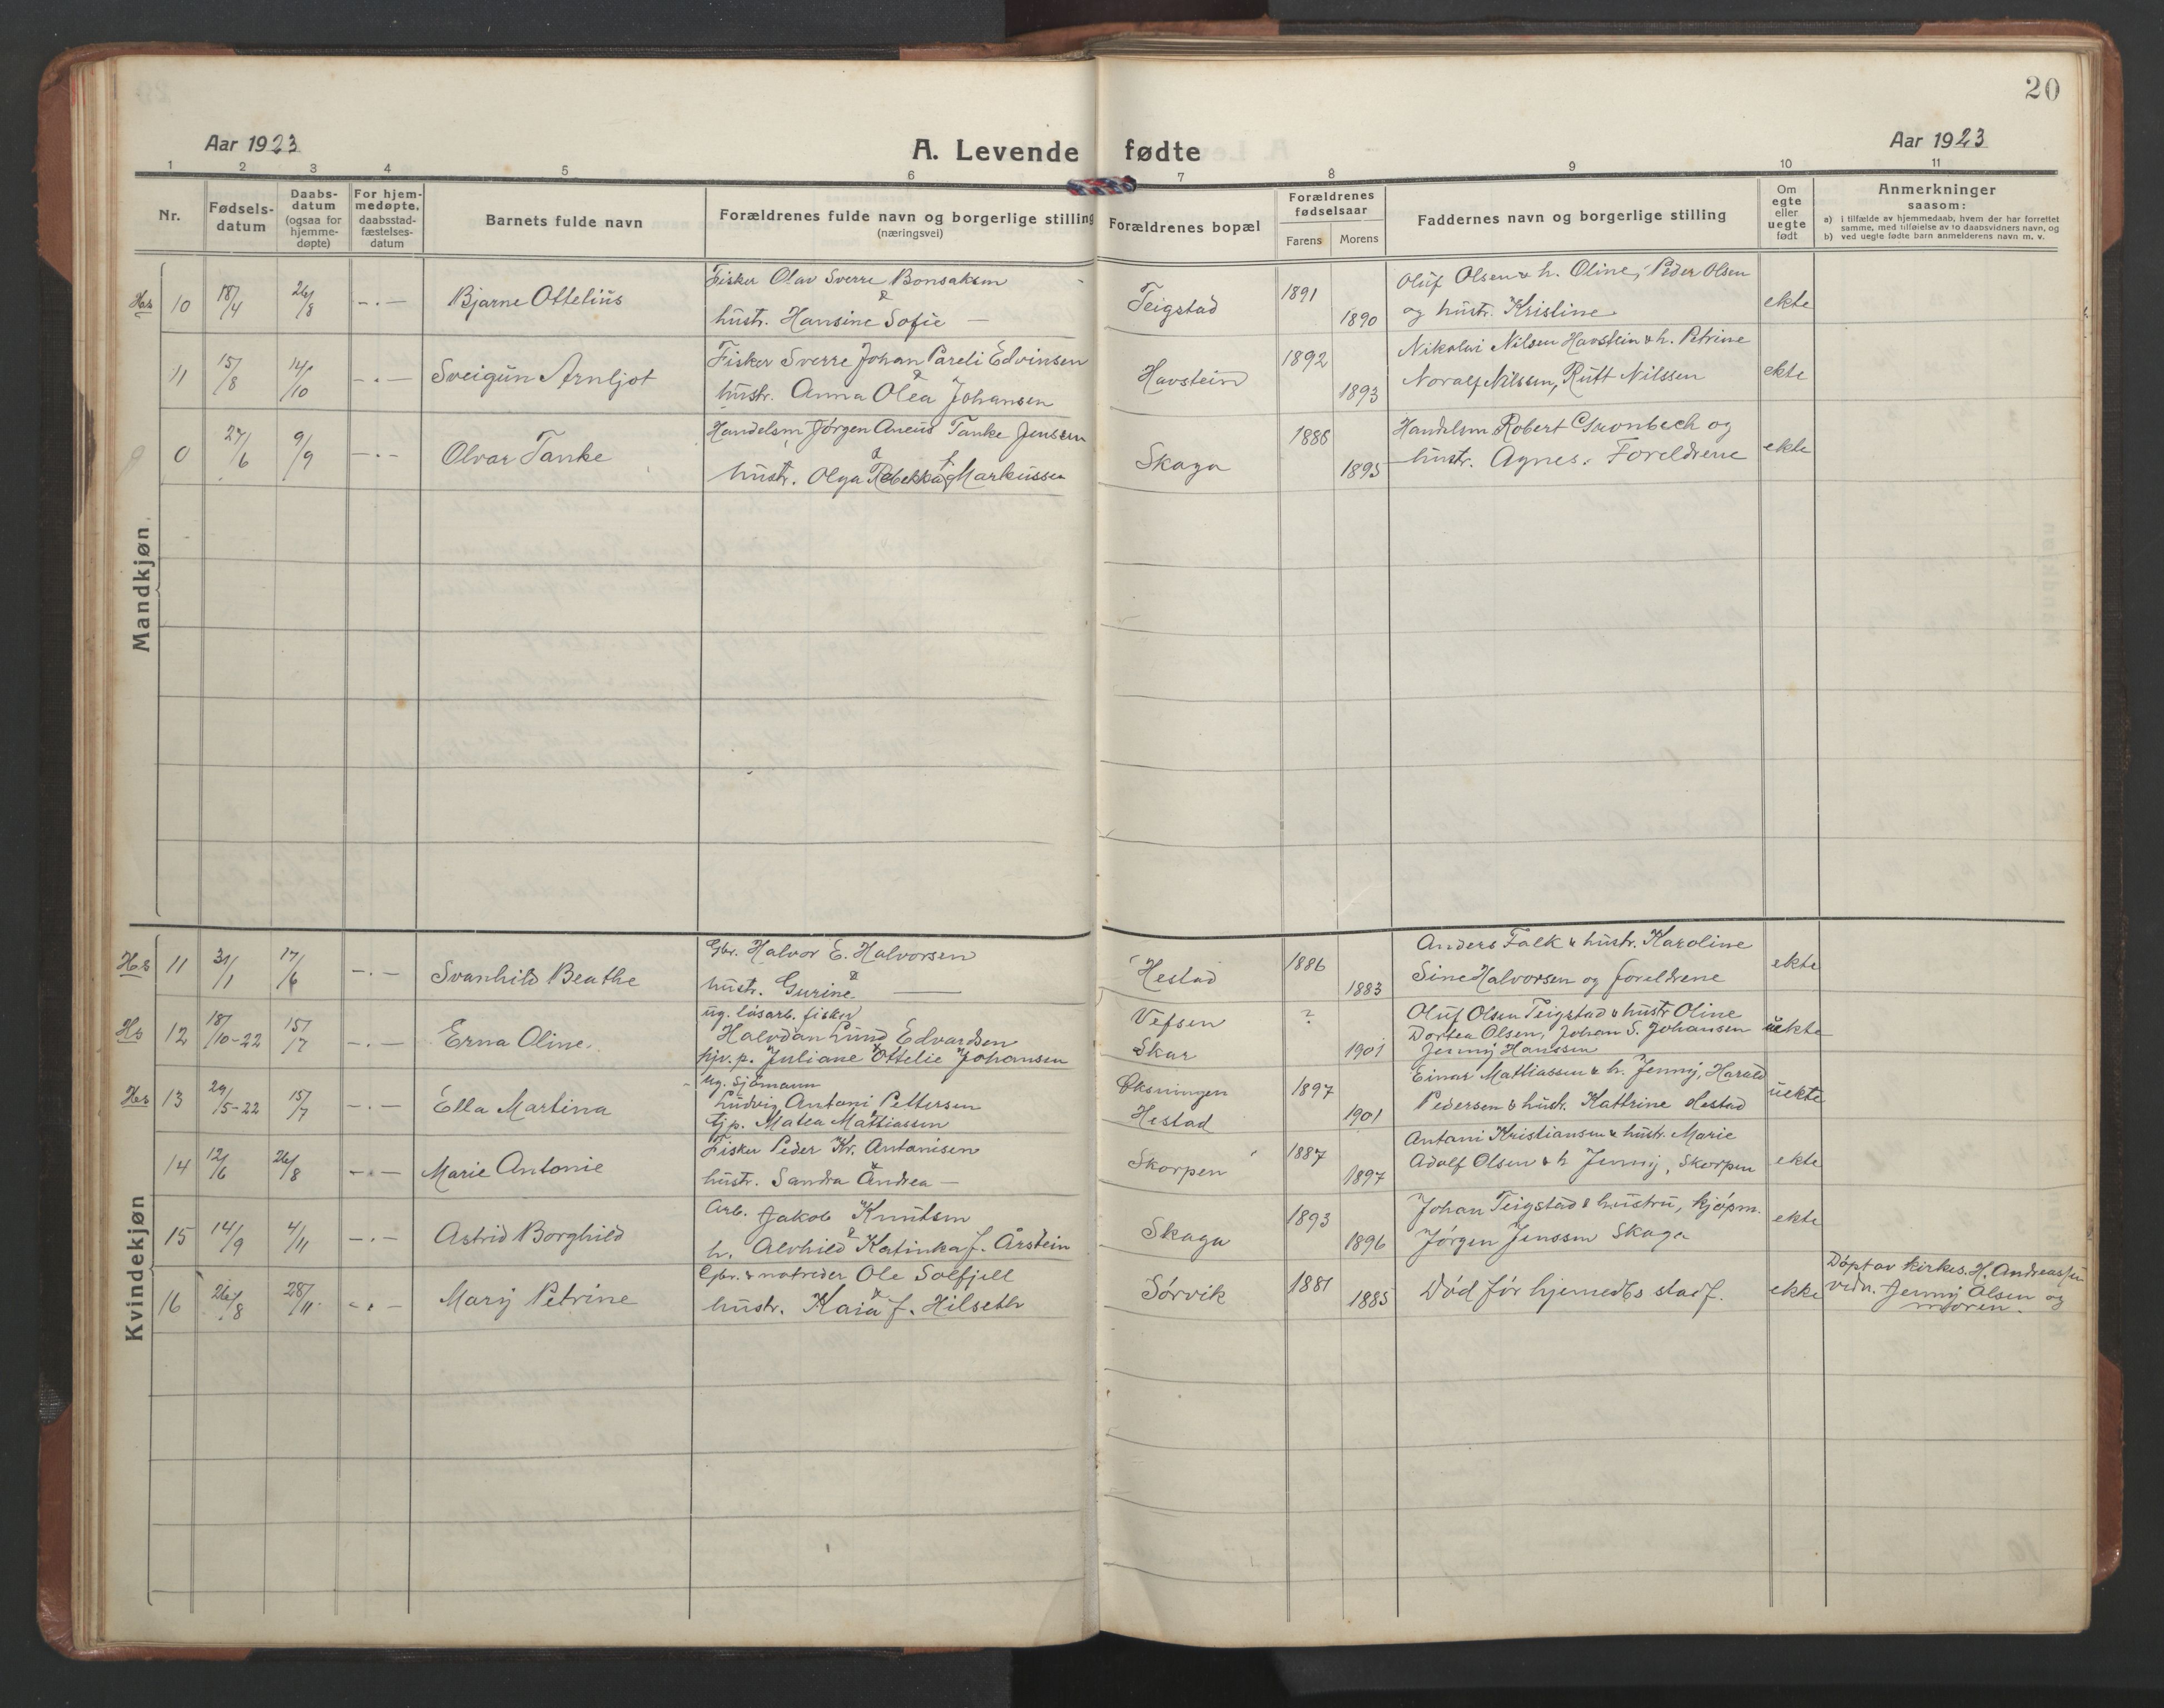 20
Aar 1923
A. Levende fødte
Aar 1923
1 2 3 4 5 6 7 8 9 10 11
Nr.
Fødsels-
datum
Daabs-
datum
(ogsaa for
hjemme-
døpte)
For hjem-
medøpte,
daabsstad-
fæstelses-
datum
Barnets fulde navn
Forældrenes fulde navn og borgerlige stilling
(næringsvei)
Forældrenes bopæl
Forældrenes
fødselsaar
Farens Morens
Faddernes navn og borgerlige stilling
Om
egte
eller
uegte
født
Anmerkninger
saasom:
a) i tilfælde av hjemmedaab, hvem der har forrettet
samme, med tilføielse av to daabsvidners navn, og
b) ved uegte fødte barn anmelderens navn m. v.
Mandkjøn
Hs 10 18/4 26/8 -.- Bjarne Ottelius
Fisker Olav Sverre Bonsaksen
&
hustr. Hansine Sofie —
Teigstad 1891 1890
Oluf Olsen & h. Oline, Peder Olsen
og hustr. Kristine
ekte
11 15/8 14/10 -.- Sveigun Arnljot
Fisker Sverre Johan Pareli Edvinsen
&
hustr. Anna Olea Johansen
Havstein 1892 1893
Nikolai Nilsen Havstein & h. Petrine
Noralf Nilssen, Rutt Nilssen
ekte
0 27/6 9/9 -.- Olvar Tanke
Handelsm. Jørgen Aneus Tanke Jenssen
&
hustr. Olga Rebekka f. Markussen
Skaga 1886 1895
Handelsm Robert Grønbech og
hustr. Agnes. Foreldrene
ekte
Kvindekjøn
Hs 11 31/1 17/6 -.- Svanhild Beathe
Gbr. Halvor E. Halvorsen
&
hustr. Gurine —
Hestad 1886 1883
Anders Falk & hustr. Karoline
Sine Halvorsen og foreldrene
ekte
Hs 12 18/10-22 15/7 -.- Erna Oline
ug. løsarb. fisker
Halvdan Lund Edvardsen
&
pjv. p. Juliane Ottelie Johansen
Vefsen
Skar
? 1901
Oluf Olsen Teigstad & hustr Oline
Dortea Olsen, Johan S. Johansen
Jenny Hanssen
uekte
Hs 13 29/5-22 15/7 -.- Ella Martina
Ug. Sjømann
Ludvig Antoni Pettersen
&
tj. p. Matea Mattiassen
Øksningen
Hestad
1897 1901
Einar Mattiassen & h. Jenny, Harald
Pedersen & hustr. Kattrine Hestad
uekte
14 12/6 26/8 -.- Marie Antonie
Fisker Peder Kr. Antonisen
&
hustr. Sandra Andrea —
Skorpen 1887 1897
Antoni Kristiansen & hustr. Marie
Adolf Olsen & h Jenny, Skorpen
ekte
15 14/9 4/11 -.- Astrid Borghild
Arb. Jakob Knutsen
&
h. Alvhild Katinka f. Årstein
Skaga 1893 1896
Johan Teigstad & hustru, kjøpm.
Jørgen Jenssen Skaga
ekte
16 26/8 28/11 -.- Mary Petrine
Gbr. & notreder Ole Solfjell
&
hustr. Kaia f. Hilseth
Sørvik 1881 1885
Død før hjemedbs stadf.
ekte
Døpt av kirkes. H. Andreassen
vidn. Jenny Olsen og
moren.